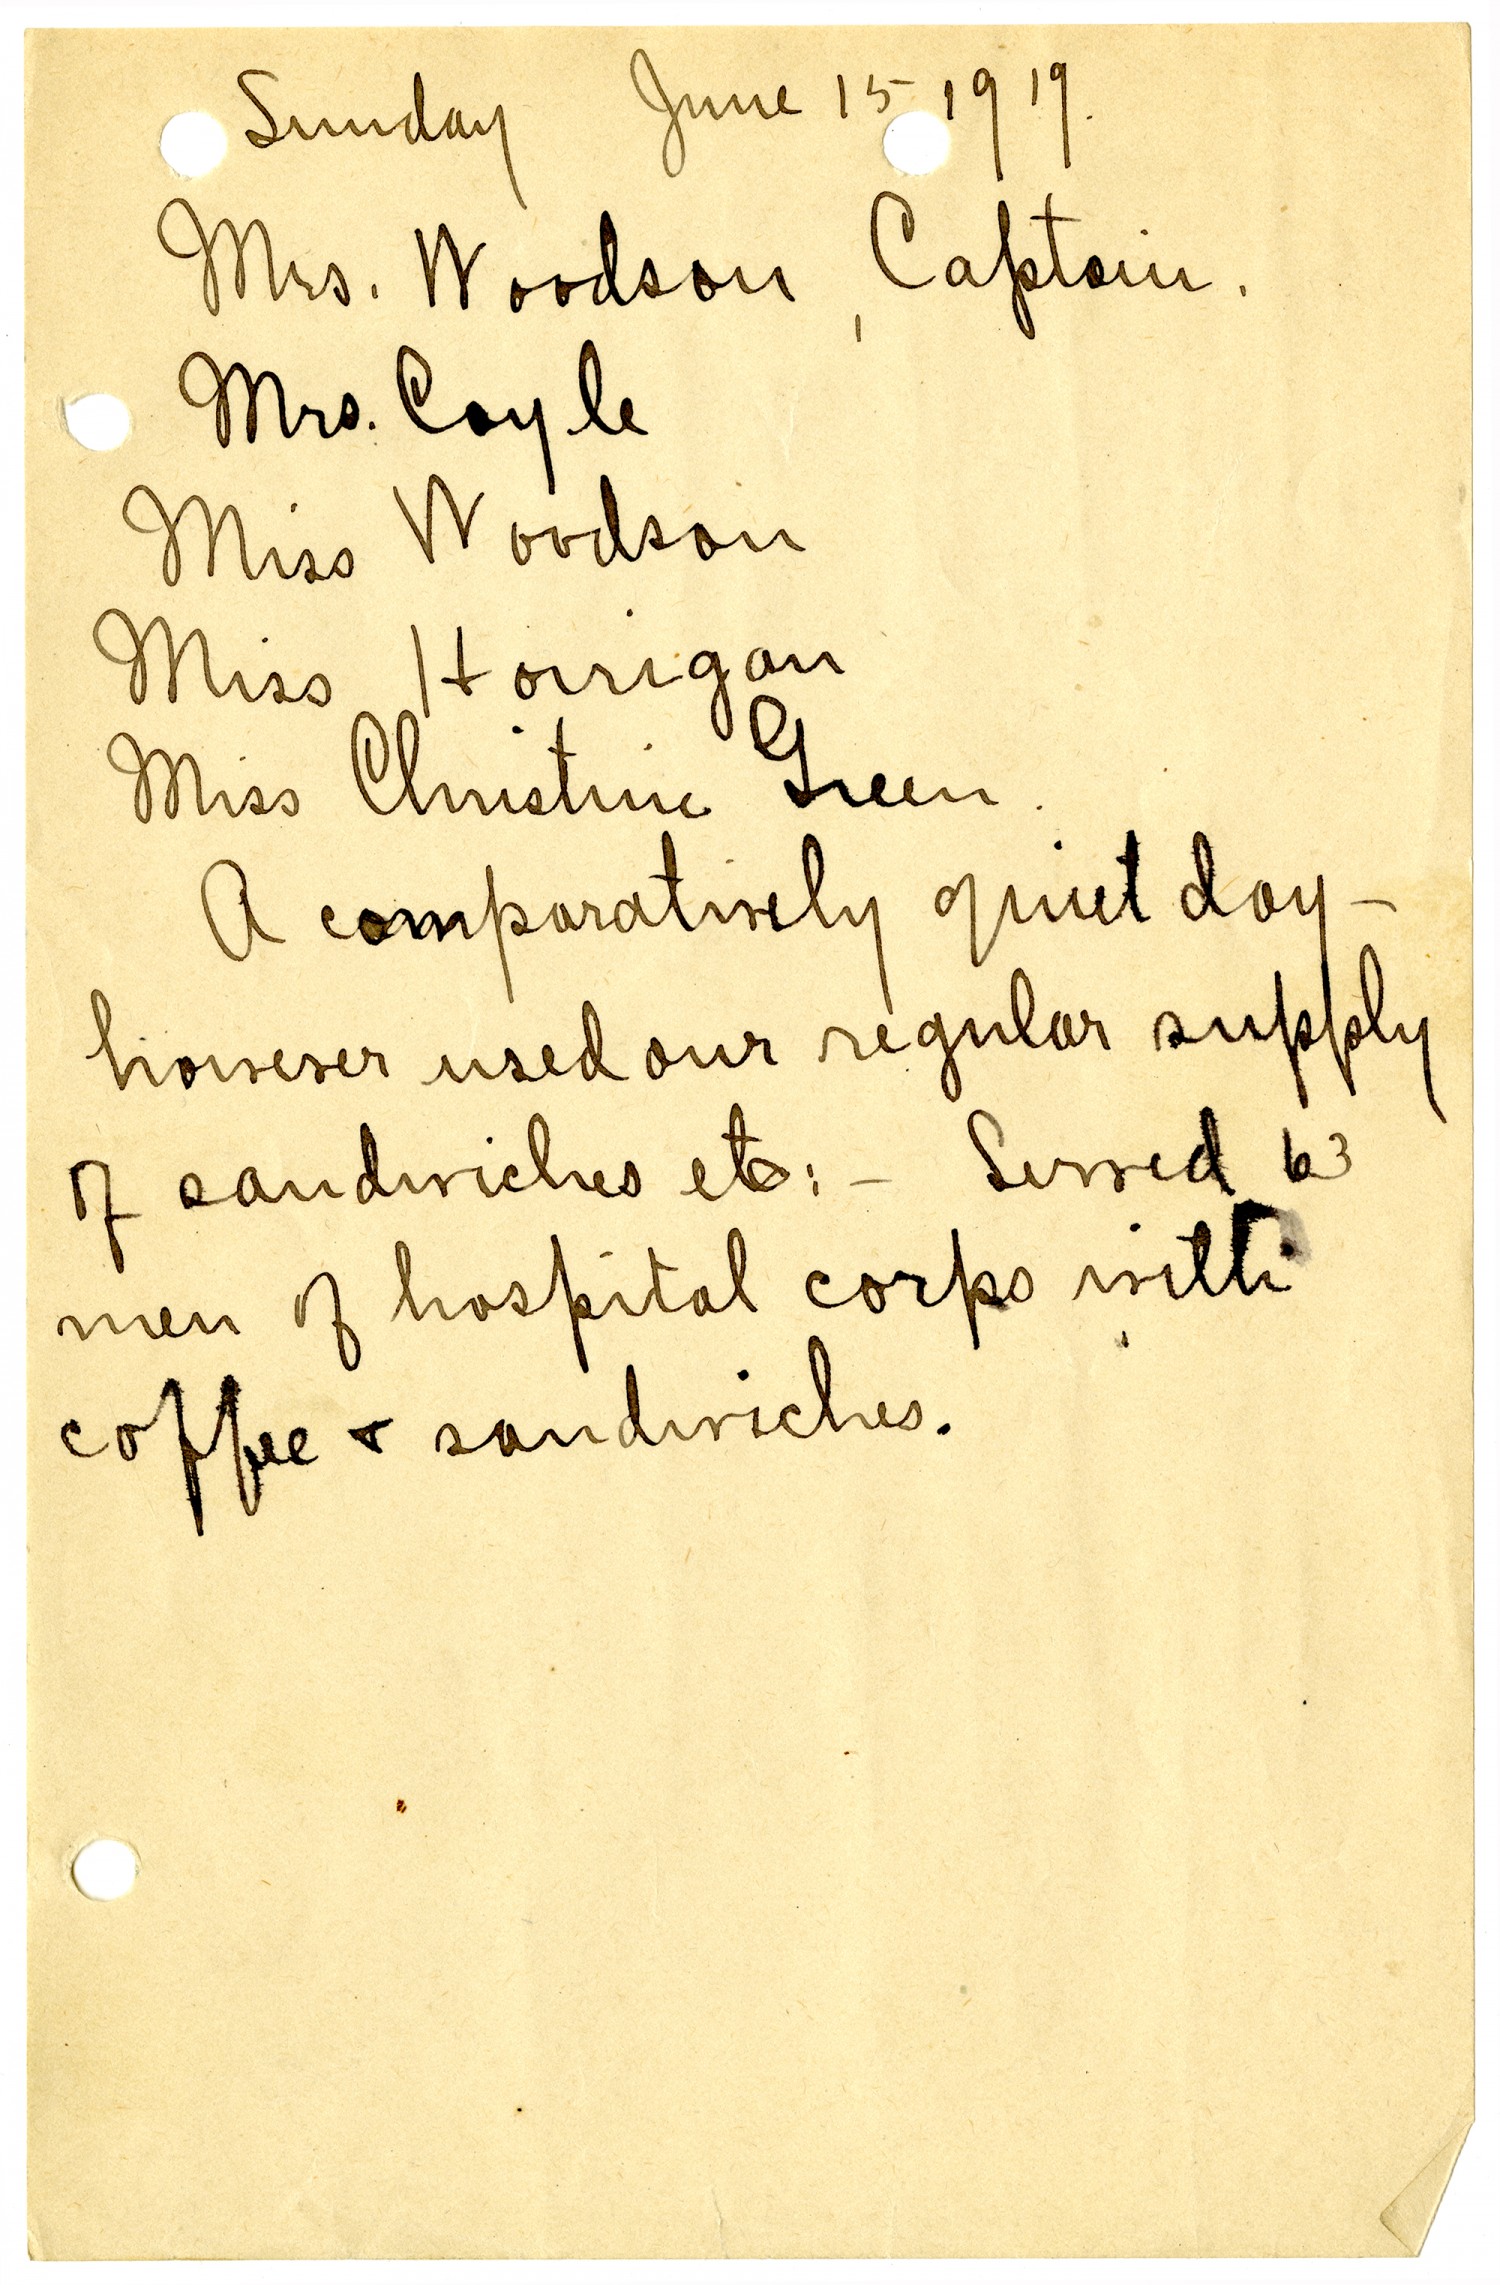 Sunday June 15 1919.
Mrs. Woodson, Captain.
Mrs. Coyle
Miss Woodson
Miss Horrigan
Miss Christine Green.
A comparatively quiet day —
however used our regular supply
of sandwiches etc: — Served 63
men of hospital corps with
coffee & sandwiches.